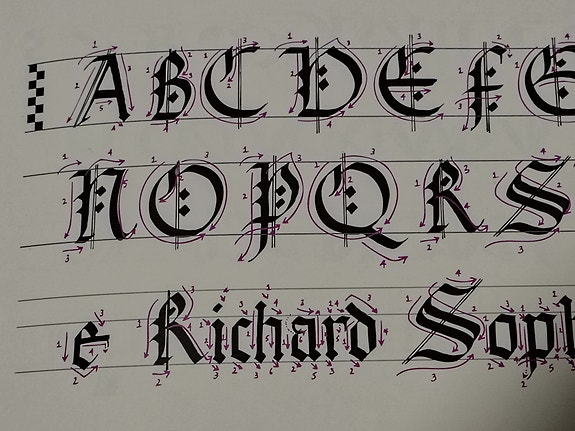 A B C D E F G
N O P Q R S
e Richard Soph